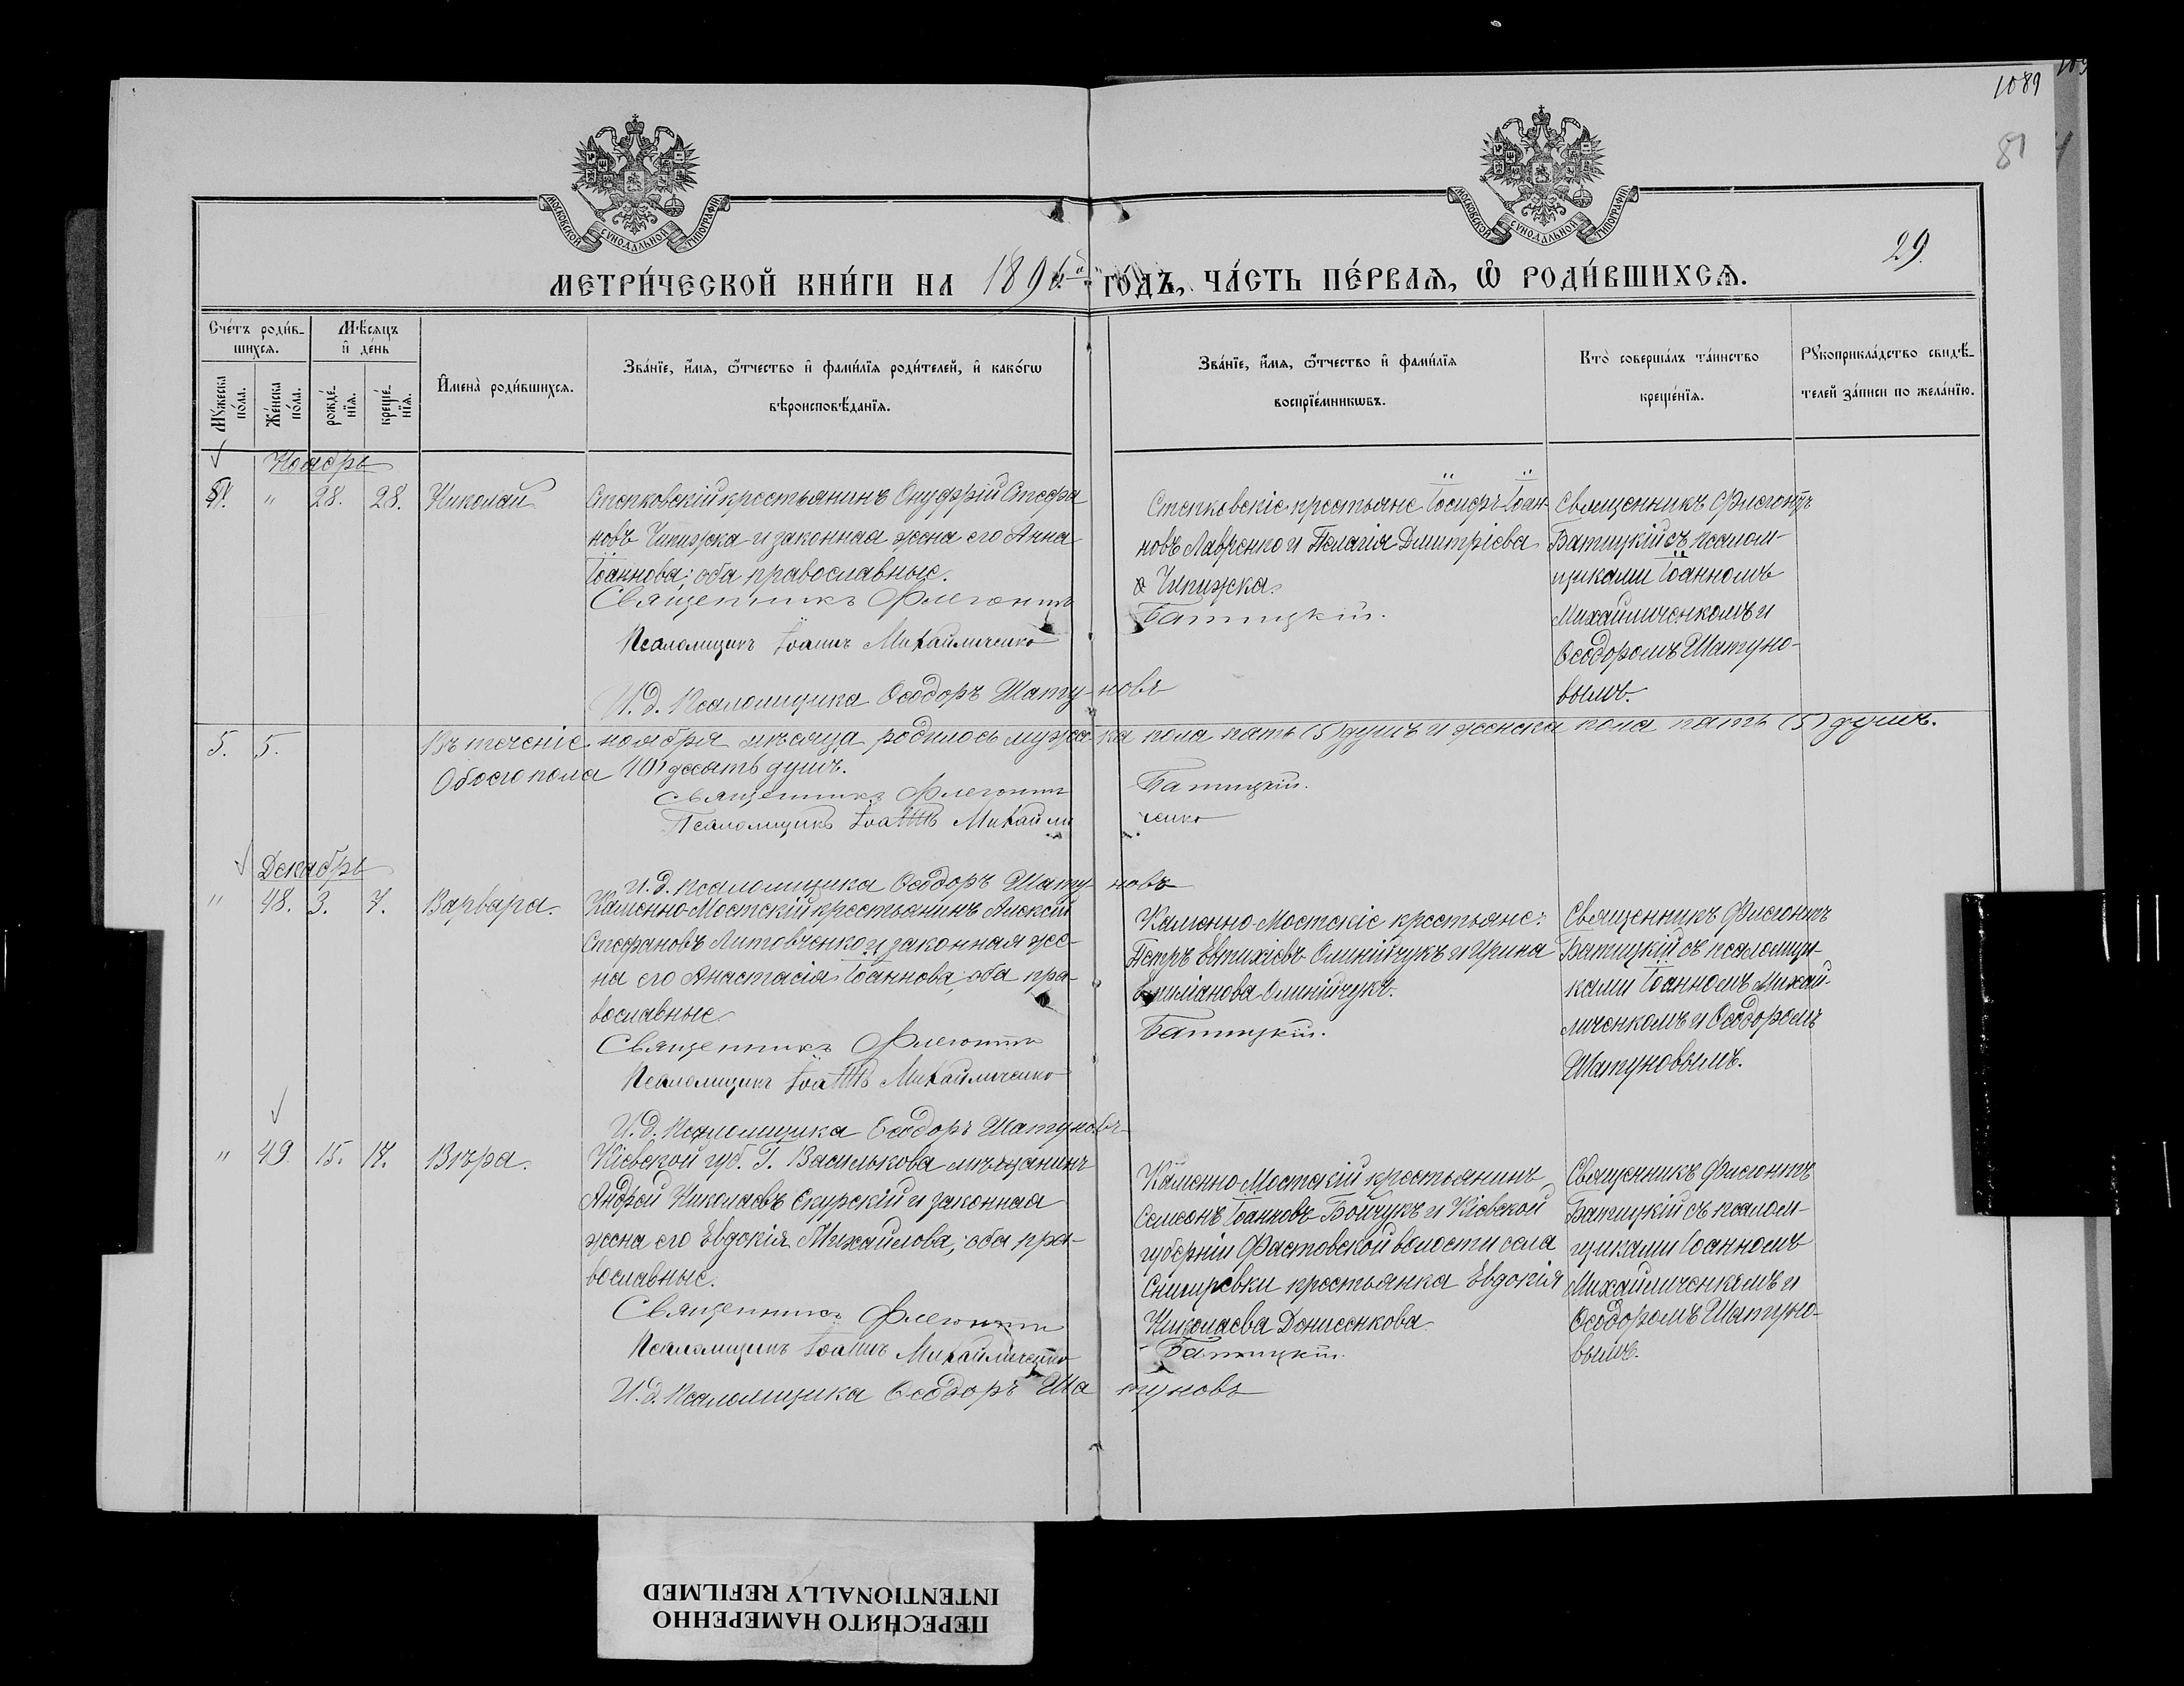 1089
81
29.
МОСКОВСКОЙ СѴНОДАЛЬНОЙ ТИПОГРАФІИ
МОСКОВСКОЙ СѴНОДАЛЬНОЙ ТИПОГРАФІИ
МЕТРИ́ЧЕСКОЙ КНИ́ГИ НА 189 ГО́ДЪ, ЧА́СТЬ ПЕ́РВАѦ, Ѡ РОДИ́ВШИХСѦ.
Сче́тъ роди́в-
шихсѧ.
Мѣ́сяцъ
и де́нь
Му́жеска
по́ла.
Же́нска
по́ла.
рожде́-
нїѧ.
креще́-
нїѧ.
Имена̀ роди́вшихсѧ.
Зва́нїе, и́мѧ, ѻ҆́тчество и фами́лїѧ роди́телей, и како́гѡ
вѣроисповѣ́данїѧ.
Зва́нїе, и́мѧ, ѻ҆́тчество и фами́лїѧ
воспрїе́мникѡвъ.
Кто̀ соверша́лъ та́инство
креще́нїѧ.
Рꙋкоприкла́дство свидѣ́-
телей за́писи по жела́нїю.
Ноябрь
51. " 28. 28. Николай
Степковскій крестьянинъ Онуфрій Стефа
новъ Чипижка и законная жена его Анна
Іоаннова; оба православные.
Священникъ Флегонтъ
Псаломщикъ Іоаннъ Михайличенко
И. д. Псаломщика Ѳеодоръ Шату-новъ
Степковскіе крестьяне Іосифъ Іоан-
новъ Лавренко и Пелагія Дмитріева
Чипижка.
Батицкій.
Священникъ Флегонтъ
Батицкій съ псалом-
щиками Іоанномъ
Михайличенкомъ и
Ѳеодоромъ Шатуно-
вымъ.
5. 5. Въ теченіе ноября мѣсяца родилось мужеска пола пять (5) душъ и женска пола пять (5) душъ.
Обоего пола 10 десять душъ.
Священникъ Флегонтъ Батицкій.
Псаломщикъ Іоаннъ Михайличенко
И. д. псаломщика Ѳеодоръ Шату-новъ
Декабрь
" 48. 3. 7. Варвара.
Каменно-Мостскій крестьянинъ Алексій
Стефановъ Литовченко и законная же-
на его Анастасія Іоаннова, оба пра-
вославные.
Священникъ Флегонтъ
Псаломщикъ Іоаннъ Михайличенко
И. д. Псаломщика Ѳеодоръ Шатуновъ
Каменно-Мостскіе крестьяне:
Петръ Евтихіевъ Олинійчукъ и Ирина
Олинійчукъ.
Батицкій.
Священникъ Флегонтъ
Батицкій съ псаломщи-
ками Іоанномъ Михай-
личенкомъ и Ѳеодоромъ
Шатуновымъ.
" 49 15. 17. Вѣра.
Кіевской губ. Г. Василькова мѣщанинъ
Андрей Николаевъ Скурскій и законная
жена его Евдокія Михайлова, оба пра-
вославные.
Священникъ Флегонтъ
Псаломщикъ Іоаннъ Михайличенко
И. д. Псаломщика Ѳеодоръ Шатуновъ
Каменно-Мостскій крестьянинъ
Семеонъ Іоанновъ Бойчукъ и Кіевской
губерніи Фастовской волости села
Снигиревки крестьянка Евдокія
Николаева Денисенкова
Батицкій.
Священникъ Флегонтъ
Батицкій съ псалом-
щиками Іоанномъ
Михайличенкомъ и
Ѳеодоромъ Шатуно-
вымъ.
ПЕРЕСНЯТО НАМЕРЕННО
INTENTIONALLY REFILMED